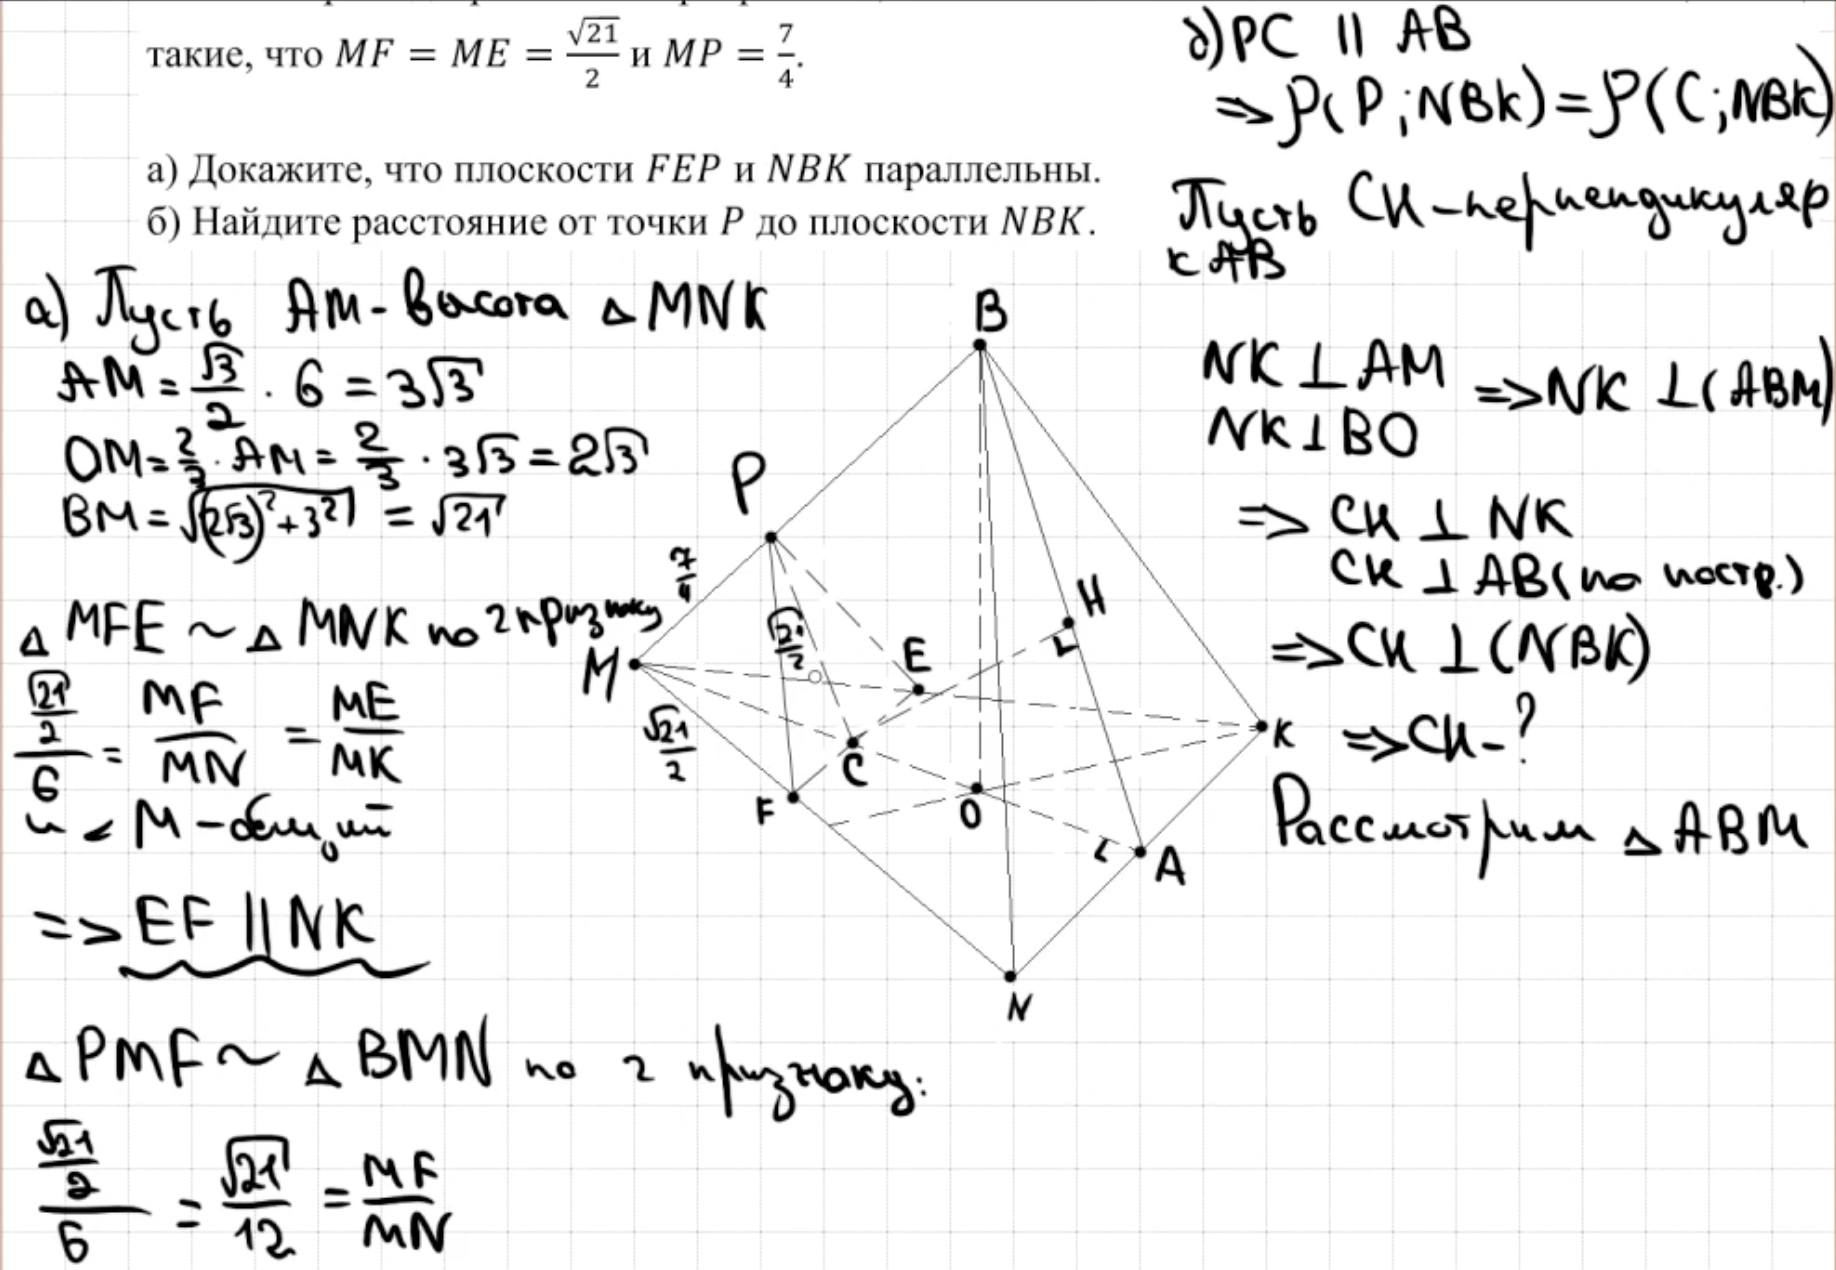 такие, что MF = ME = √21/2 и MP = 7/4.
а) Докажите, что плоскости FEP и NBK параллельны.
б) Найдите расстояние от точки P до плоскости NBK.
а) Пусть AM - высота △ MNK
AM = √3/2 · 6 = 3√3
OM = 2/3 · AM = 2/3 · 3√3 = 2√3
BM = √((2√3)² + 3²) = √21
△ MFE ~ △ MNK по 2 признаку
√21/2/6 = MF/MN = ME/MK
и ∠ M - общий
=> EF || NK
△ PMF ~ △ BMN по 2 признаку:
√21/2/6 = √21/12 = MF/MN
B
P
7/4
√21/2
H
E
M
√21/2
C
K
F
O
A
N
б) PC || AB
=> ρ(P; NBK) = ρ(C; NBK)
Пусть CH - перпендикуляр
к AB
NK ⊥ AM
NK ⊥ BO
=> NK ⊥ (ABM)
=> CH ⊥ NK
CH ⊥ AB (по постр.)
=> CH ⊥ (NBK)
=> CH - ?
Рассмотрим △ ABM